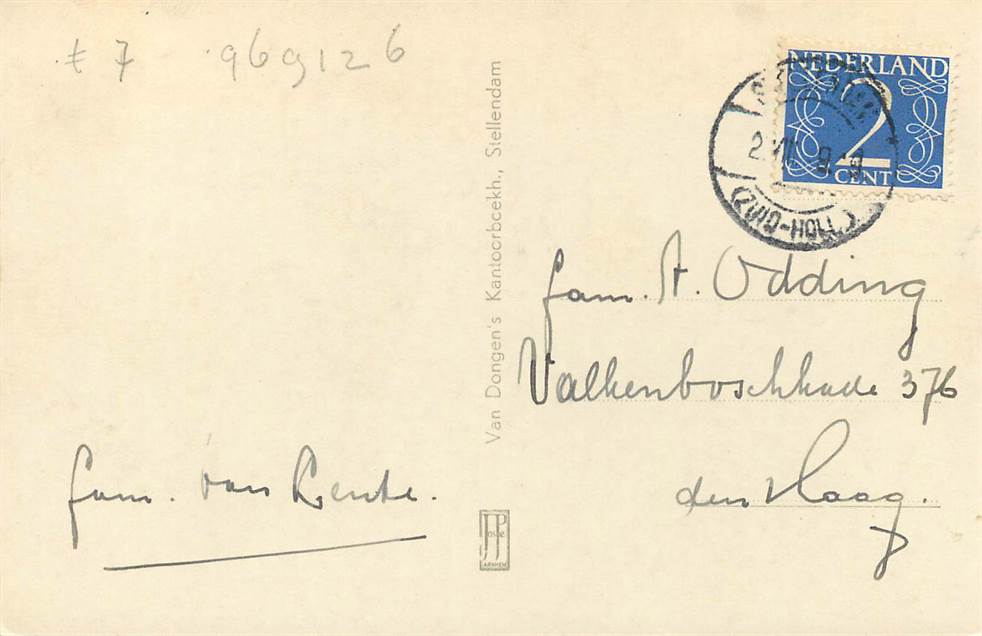 7 969126
NEDERLAND
2
CENT
(ZUID-HOL.)
Van Dongen's Kantoorboekh., Stellendam
fam. A. Odding
Valkenboschkade 376
den Haag.
fam. van
JosPe
ARNHEM